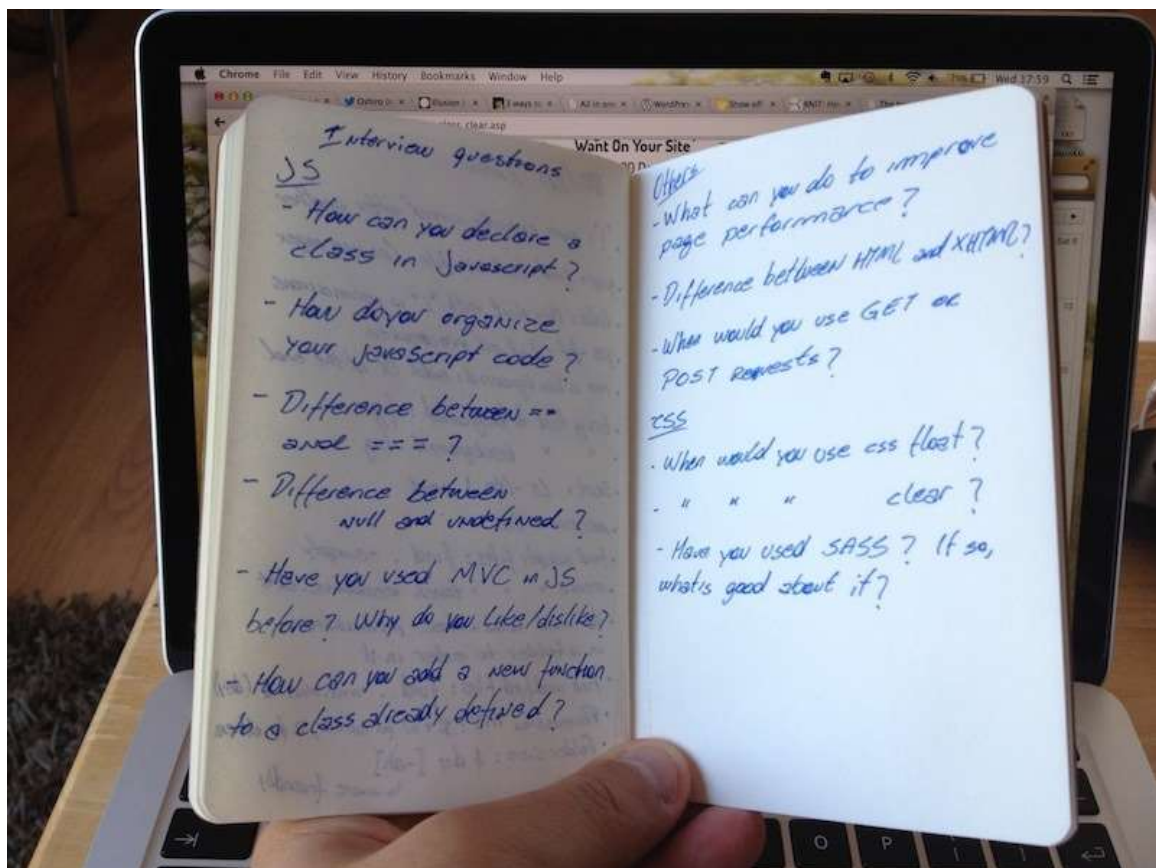 Chrome File Edit View History Bookmarks Window Help
Wed 17:59
class_clear.asp
Want On Your Site
Interview questions
JS
- How can you declare a
class in Javascript?
- How do you organize
your javascript code?
- Difference between ==
and ===?
- Difference between
null and undefined?
- Have you used MVC in JS
before? Why do you like/dislike?
- How can you add a new function
to a class already defined?
Others
- What can you do to improve
page performance?
- Difference between HTML and XHTML?
- When would you use GET or
POST Requests?
CSS
- When would you use css float?
- " " " clear?
- Have you used SASS? If so,
what's good about it?
O P